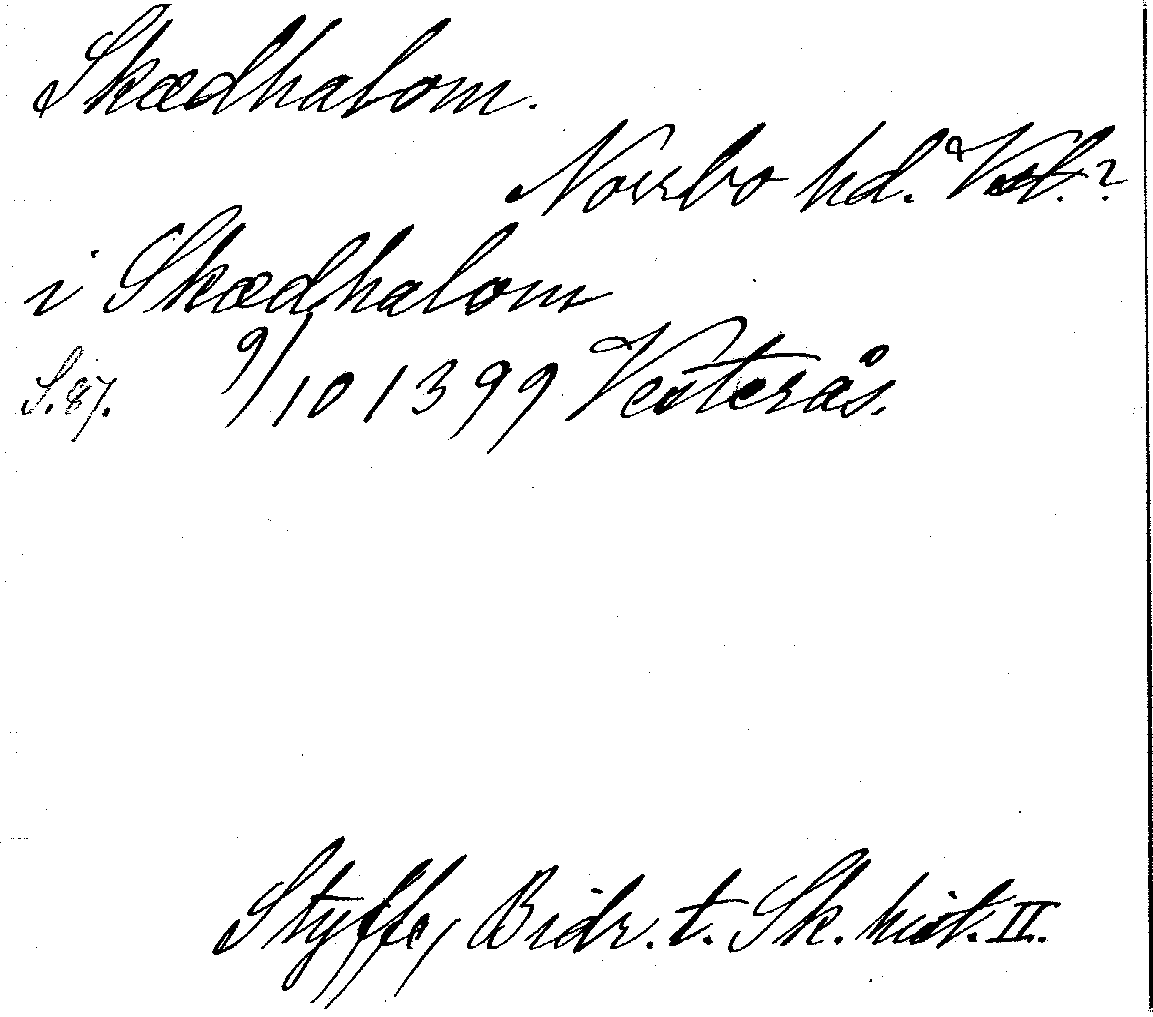 Skædhalom.
Norrbo hd. Vstl.?
i Skædhalom
S. 87. 9/10 1399 Vesterås.
Styffe, Bidr. t. Sk. hist. II.